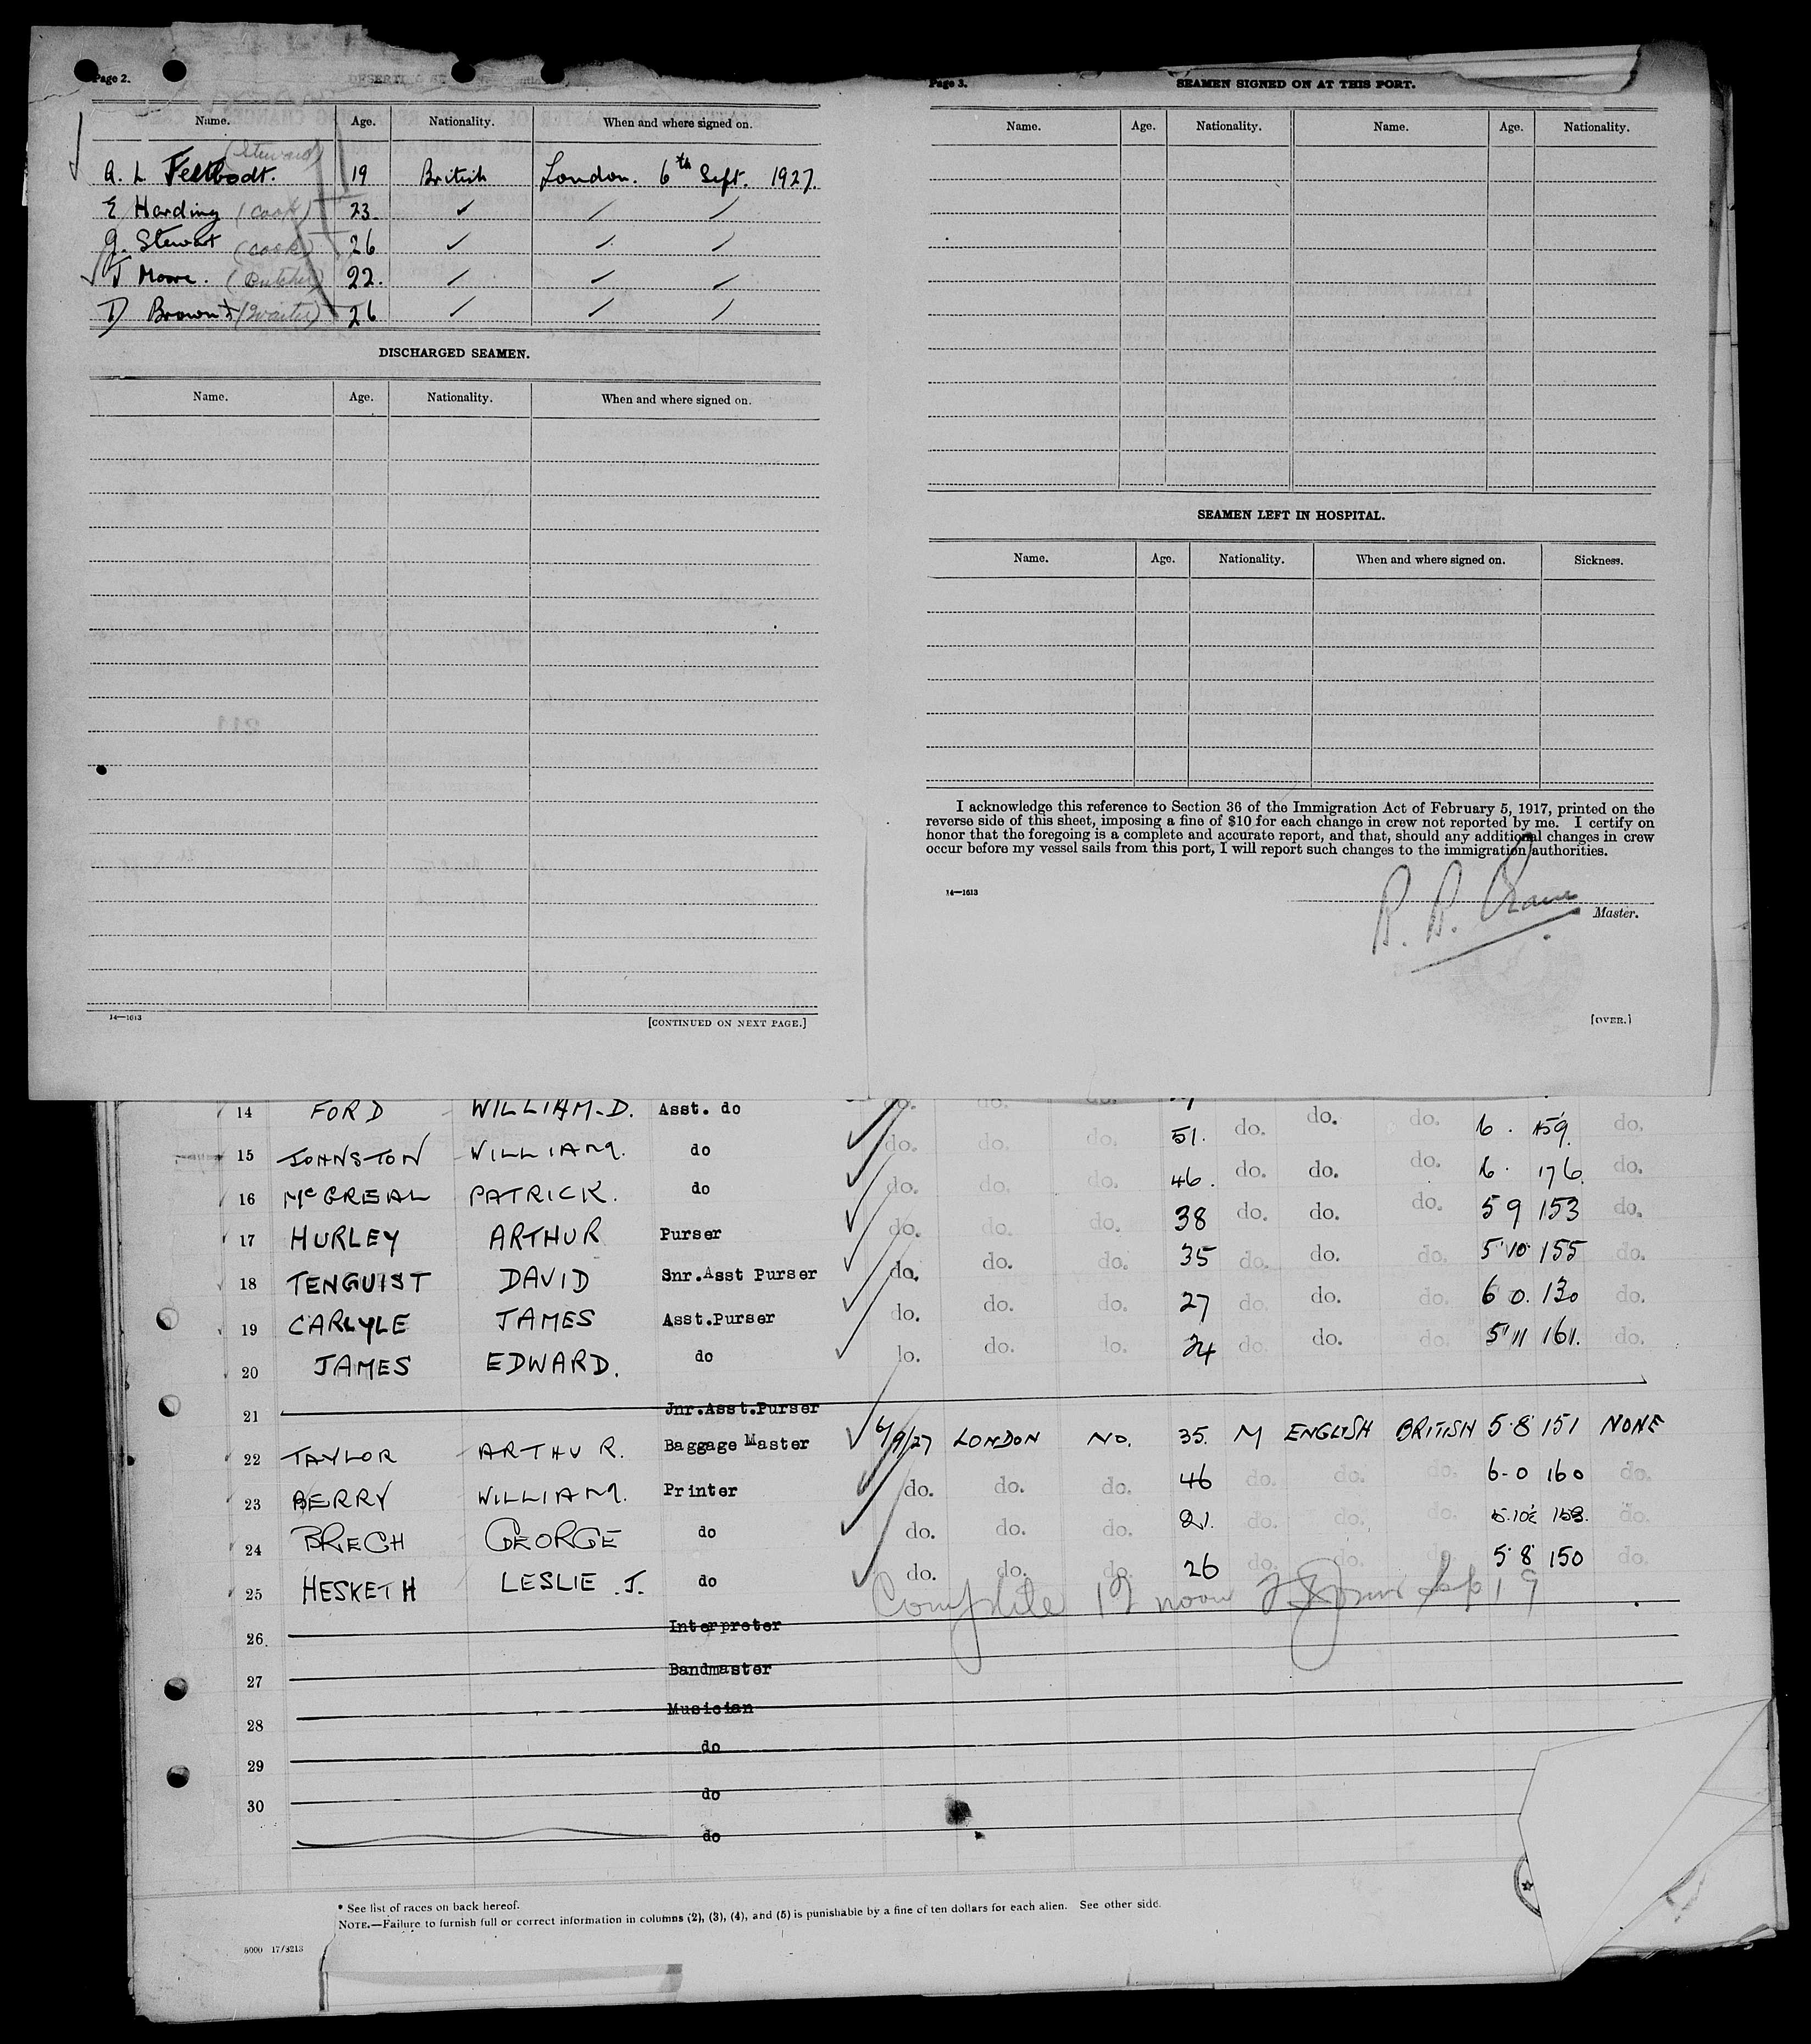 Page 2.
Name. Age. Nationality. When and where signed on.
(Steward)
A. L. 19 British London. 6th Sept. 1927.
E Harding (Cook) 23. ✓ / /
G. Stewart (Cook) 26 ✓ / /
J Moore. (Butcher) 22. / / /
D Brown (Waiter) 26 / / /
DISCHARGED SEAMEN.
Name. Age. Nationality. When and where signed on.
14—1613 [CONTINUED ON NEXT PAGE.]
Page 3. SEAMEN SIGNED ON AT THIS PORT.
Name. Age. Nationality. Name. Age. Nationality.
SEAMEN LEFT IN HOSPITAL.
Name. Age. Nationality. When and where signed on. Sickness.
I acknowledge this reference to Section 36 of the Immigration Act of February 5, 1917, printed on the
reverse side of this sheet, imposing a fine of $10 for each change in crew not reported by me. I certify on
honor that the foregoing is a complete and accurate report, and that, should any additional changes in crew
occur before my vessel sails from this port, I will report such changes to the immigration authorities.
14—1613
Master.
[OVER.]
14 FORD WILLIAM. D. Asst. do do. do. do.
15 JOHNSTON WILLIAM. do do. do. do. 51. do. do. do. 6 . 159. do.
16 McGREAL PATRICK. do do. do. do. 46. do. do. do. 6 . 176. do.
17 HURLEY ARTHUR Purser do. do. do. 38 do. do. do. 5 9 153 do.
18 TENGUIST DAVID Snr.Asst Purser do. do. do. 35 do. do. do. 5'10 155 do.
19 CARLYLE JAMES Asst.Purser do. do. do. 27 do. do. do. 6 0. 130 do.
20 JAMES EDWARD. do do. do. do. 24 do. do. do. 5'11 161. do.
21 Jnr.Asst.Purser
22 TAYLOR ARTHUR. Baggage Master 6/9/27 LONDON NO. 35. M ENGLISH BRITISH 5·8 151 NONE
23 BERRY WILLIAM. Printer do. do. do. 46 do. do. do. 6-0 160 do.
24 BRECH GEORGE do do. do. do. 21. do. do. do. 5.10½ 158. do.
25 HESKETH LESLIE .J. do do. do. do. 26 do. do. do. 5·8 150 do.
Complete 12 noon Sep 19
26. Interpreter
27 Bandmaster
28 Musician
29 do
30 do
do
* See list of races on back hereof.
NOTE.—Failure to furnish full or correct information in columns (2), (3), (4), and (5) is punishable by a fine of ten dollars for each alien. See other side.
5000 17/3213